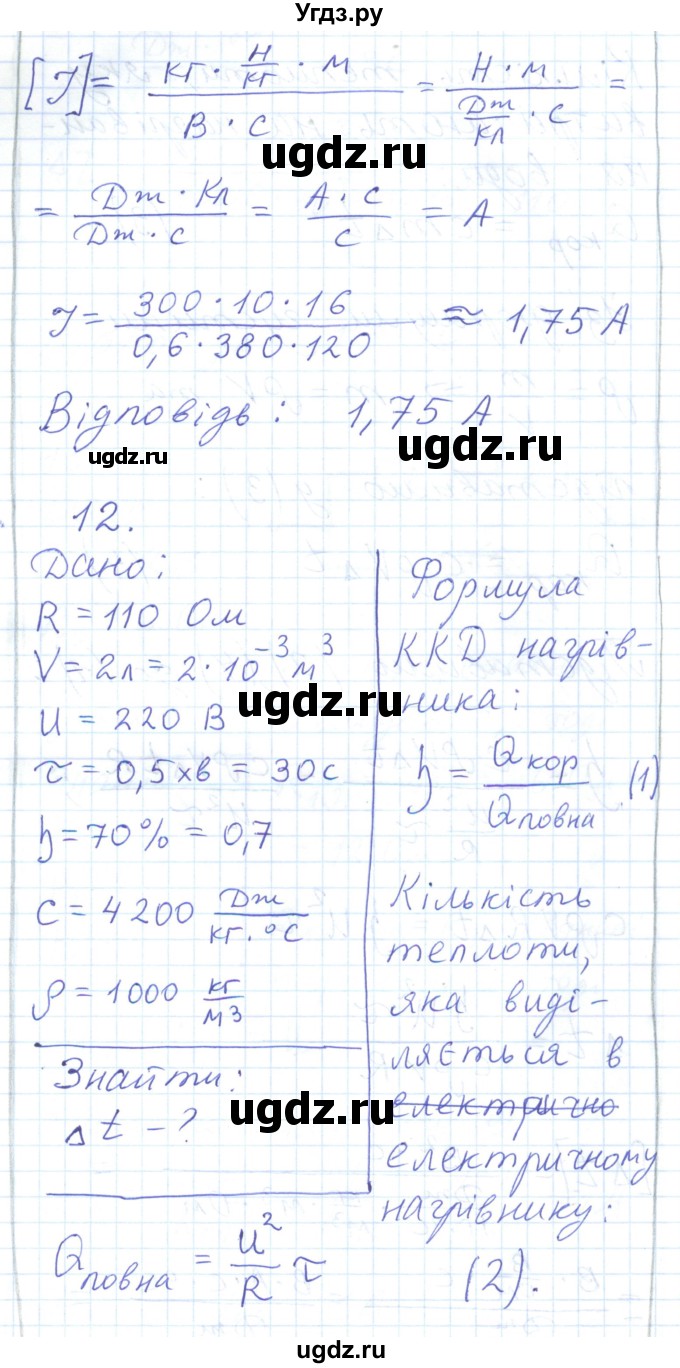 Угдз.ру
[I] = (кг · Н/кг · м)/(В · с) = (Н · м)/(Дж/Кл · с) =
ugdz.ru
= (Дж · Кл)/(Дж · с) = (А · с)/с = А
I = (300 · 10 · 16)/(0,6 · 380 · 120) ≈ 1,75 А
Відповідь: 1,75 А
ugdz.ru ugdz.ru
12.
Дано:
R = 110 Ом
V = 2л = 2 · 10⁻³ м³
ugdz.ru
U = 220 В
τ = 0,5 хв = 30 с
η = 70% = 0,7
c = 4200 Дж/(кг · °С)
ρ = 1000 кг/м³
Знайти:
ugdz.ru
Δt - ?
Формула
ККД нагрів-
ника:
η = Qкор/Qповна (1)
Кількість
теплоти,
яка виді-
ляється в
електрично
електричному
нагрівнику:
Qповна = U²/R τ (2).
ugdz.ru ugdz.ru